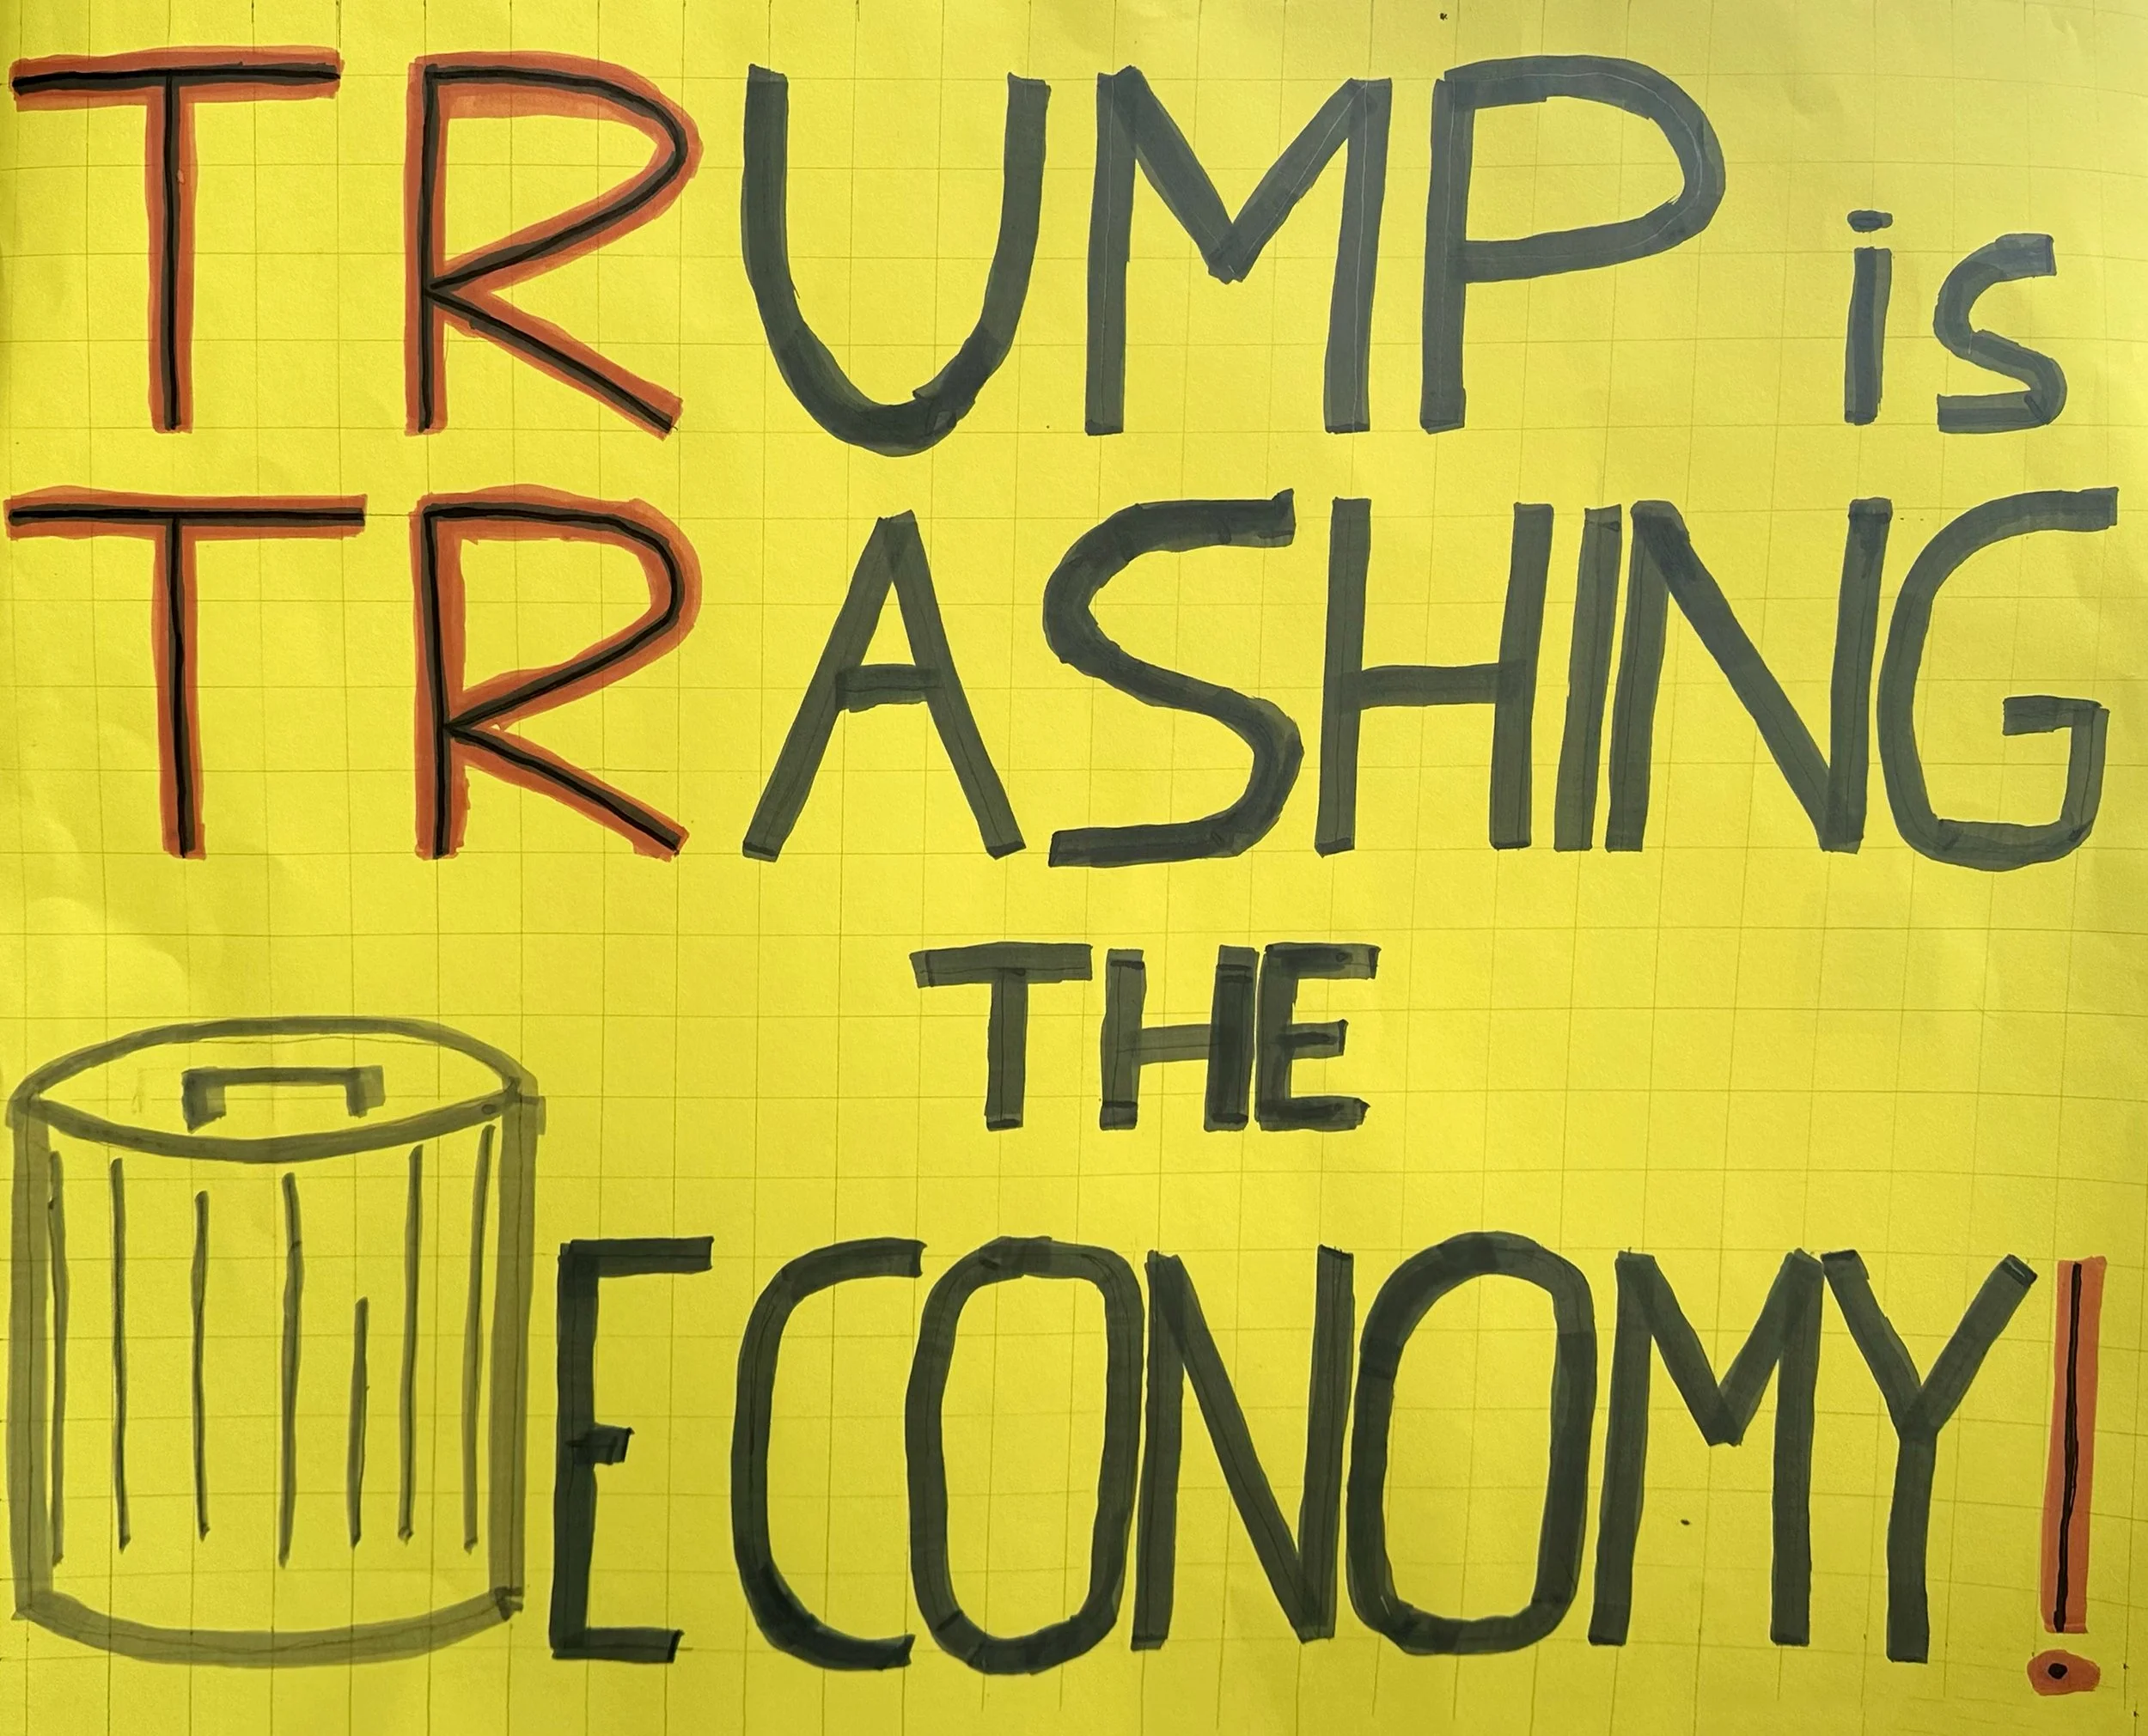 TRUMP is
TRASHING
THE
ECONOMY!